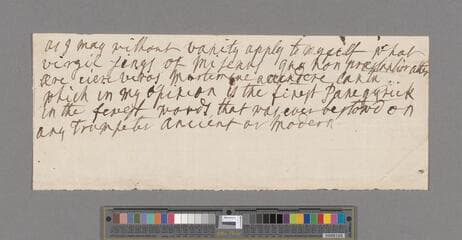 as I may without vanity apply to myself what
virgil sings of misenus quo non præstantior alter
ære ciere viros martemque accendere cantu.
which in my opinion is the finest Panegyrick
in the fewest words that was ever bestowd on
any trumpeter ancient or modern